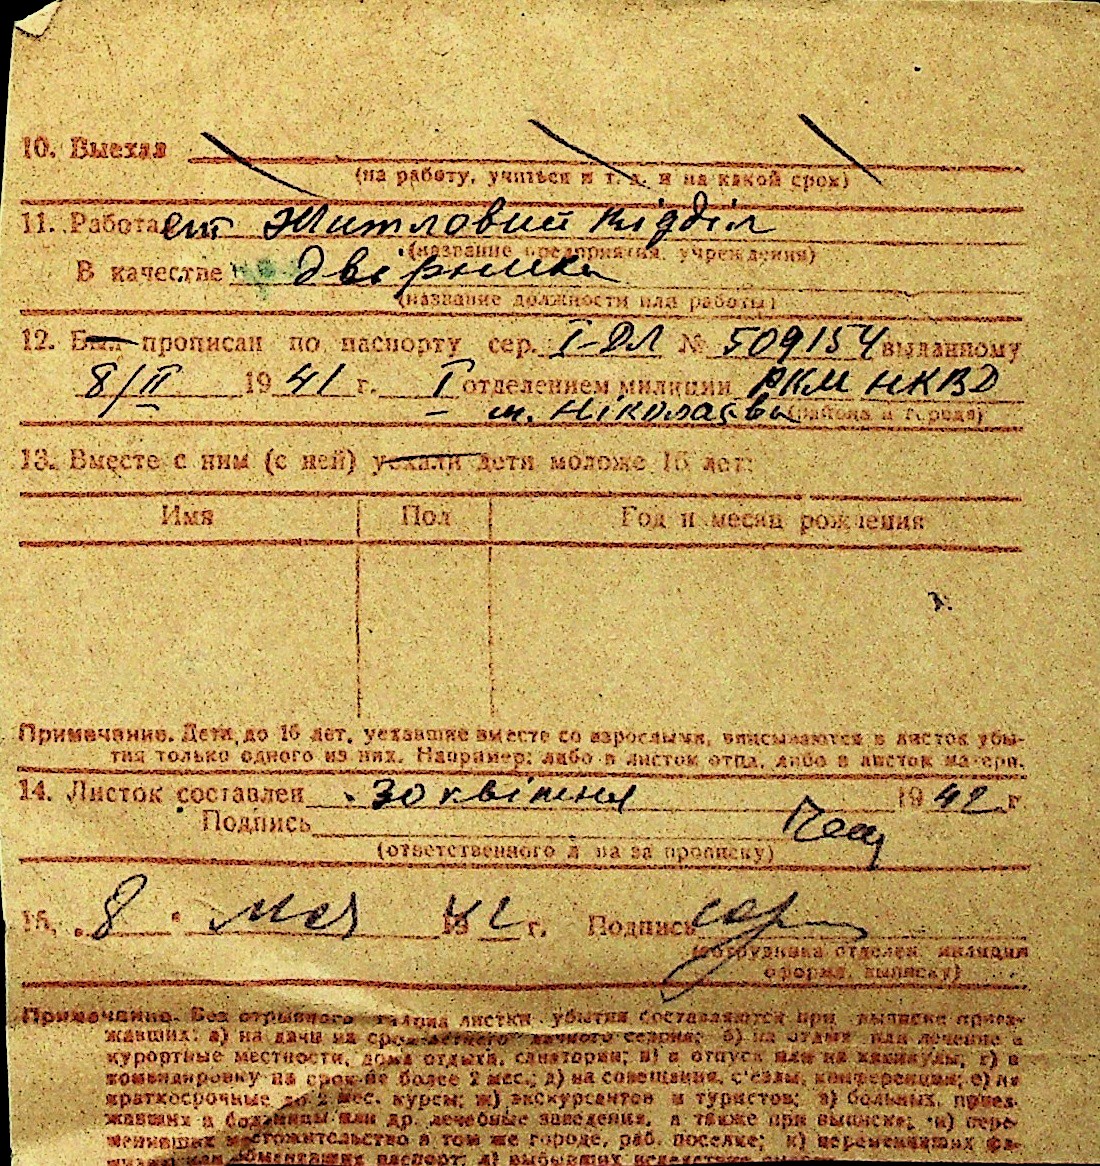 10. Выехал
(на работу, учиться и т. д. и на какой срок)
11. Работает Житловий відділ
(название предприятия, учреждения)
В качестве двірника
(название должности или работы)
12. Был прописан по паспорту сер. I-ДЛ № 509154 выданному
8/II 1941 г. I отделением милиции РКМ НКВД
м. Ніколаєва (района и города)
13. Вместе с ним (с ней) уехали дети моложе 16 лет:
Имя Пол Год и месяц рождения
Примечание. Дети до 16 лет, уехавшие вместе со взрослыми, вписываются в листок убы-
тия только одного из них. Например: либо в листок отца, либо в листок матери.
14. Листок составлен 30 квітня 1942 г.
Подпись
(ответственного л-ца за прописку)
15. 8 " мая 1942 г. Подпись
(сотрудника отделен. милиции
оформл. выписку)
Примечание. Без отрывного талона листки убытия составляются при выписке приез-
жавших: а) на дачи на срок летнего дачного сезона; б) на отдых или лечение в
курортные местности, дома отдыха, санатории; в) в отпуск или на каникулы; г) в
командировку на срок не более 2 мес.; д) на совещания, съезды, конференции; е) на
краткосрочные до 2 мес. курсы; ж) экскурсантов и туристов; з) больных, приез-
жавших в больницы или др. лечебные заведения, а также при выписке: и) пере-
менивших местожительство в том же городе, раб. поселке; к) переменивших фа-
обменявших паспорт; л) выбывших вследствие